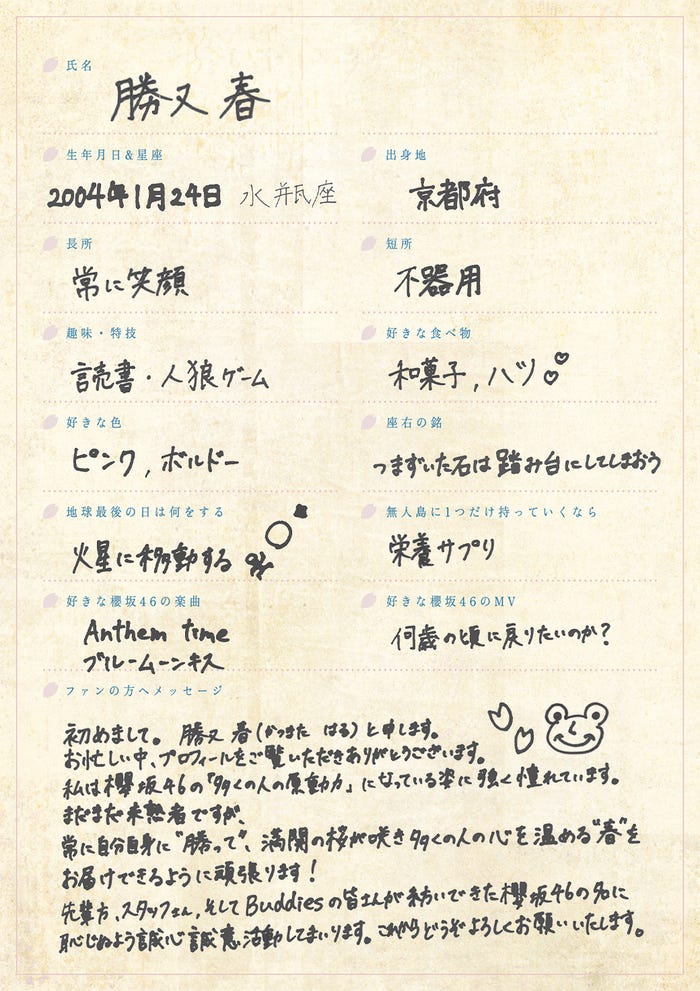 氏名
勝又 春
生年月日&星座
2004年1月24日 水瓶座
出身地
京都府
長所
常に笑顔
短所
不器用
趣味・特技
読書・人狼ゲーム
好きな食べ物
和菓子, ハツ
好きな色
ピンク, ボルドー
座右の銘
つまずいた石は踏み台にしてしまおう
地球最後の日は何をする
火星に移動する
無人島に1つだけ持っていくなら
栄養サプリ
好きな櫻坂46の楽曲
Anthem time
ブルームーンキス
好きな櫻坂46のMV
何歳の頃に戻りたいのか?
ファンの方へメッセージ
初めまして。 勝又 春(かつまた はる)と申します。
お忙しい中、プロフィールをご覧いただきありがとうございます。
私は櫻坂46の「多くの人の原動力」になっている姿に強く憧れています。
まだまだ未熟者ですが、
常に自分自身に"勝って"、満開の桜が咲き多くの人の心を温める"春"を
お届けできるように頑張ります!
先輩方、スタッフさん、そしてBuddiesの皆さんが紡いできた櫻坂46の名に
恥じぬよう誠心誠意活動してまいります。これからどうぞよろしくお願いいたします。